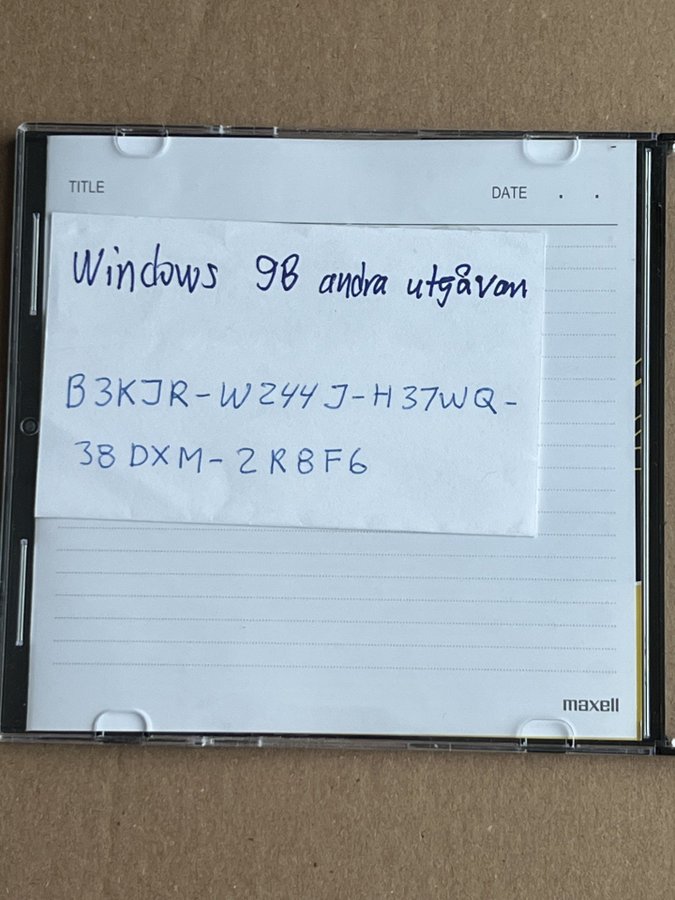 TITLE
DATE . .
Windows 98 andra utgåvan
B3KJR-W244J-H37WQ-
38DXM-2R8F6
maxell